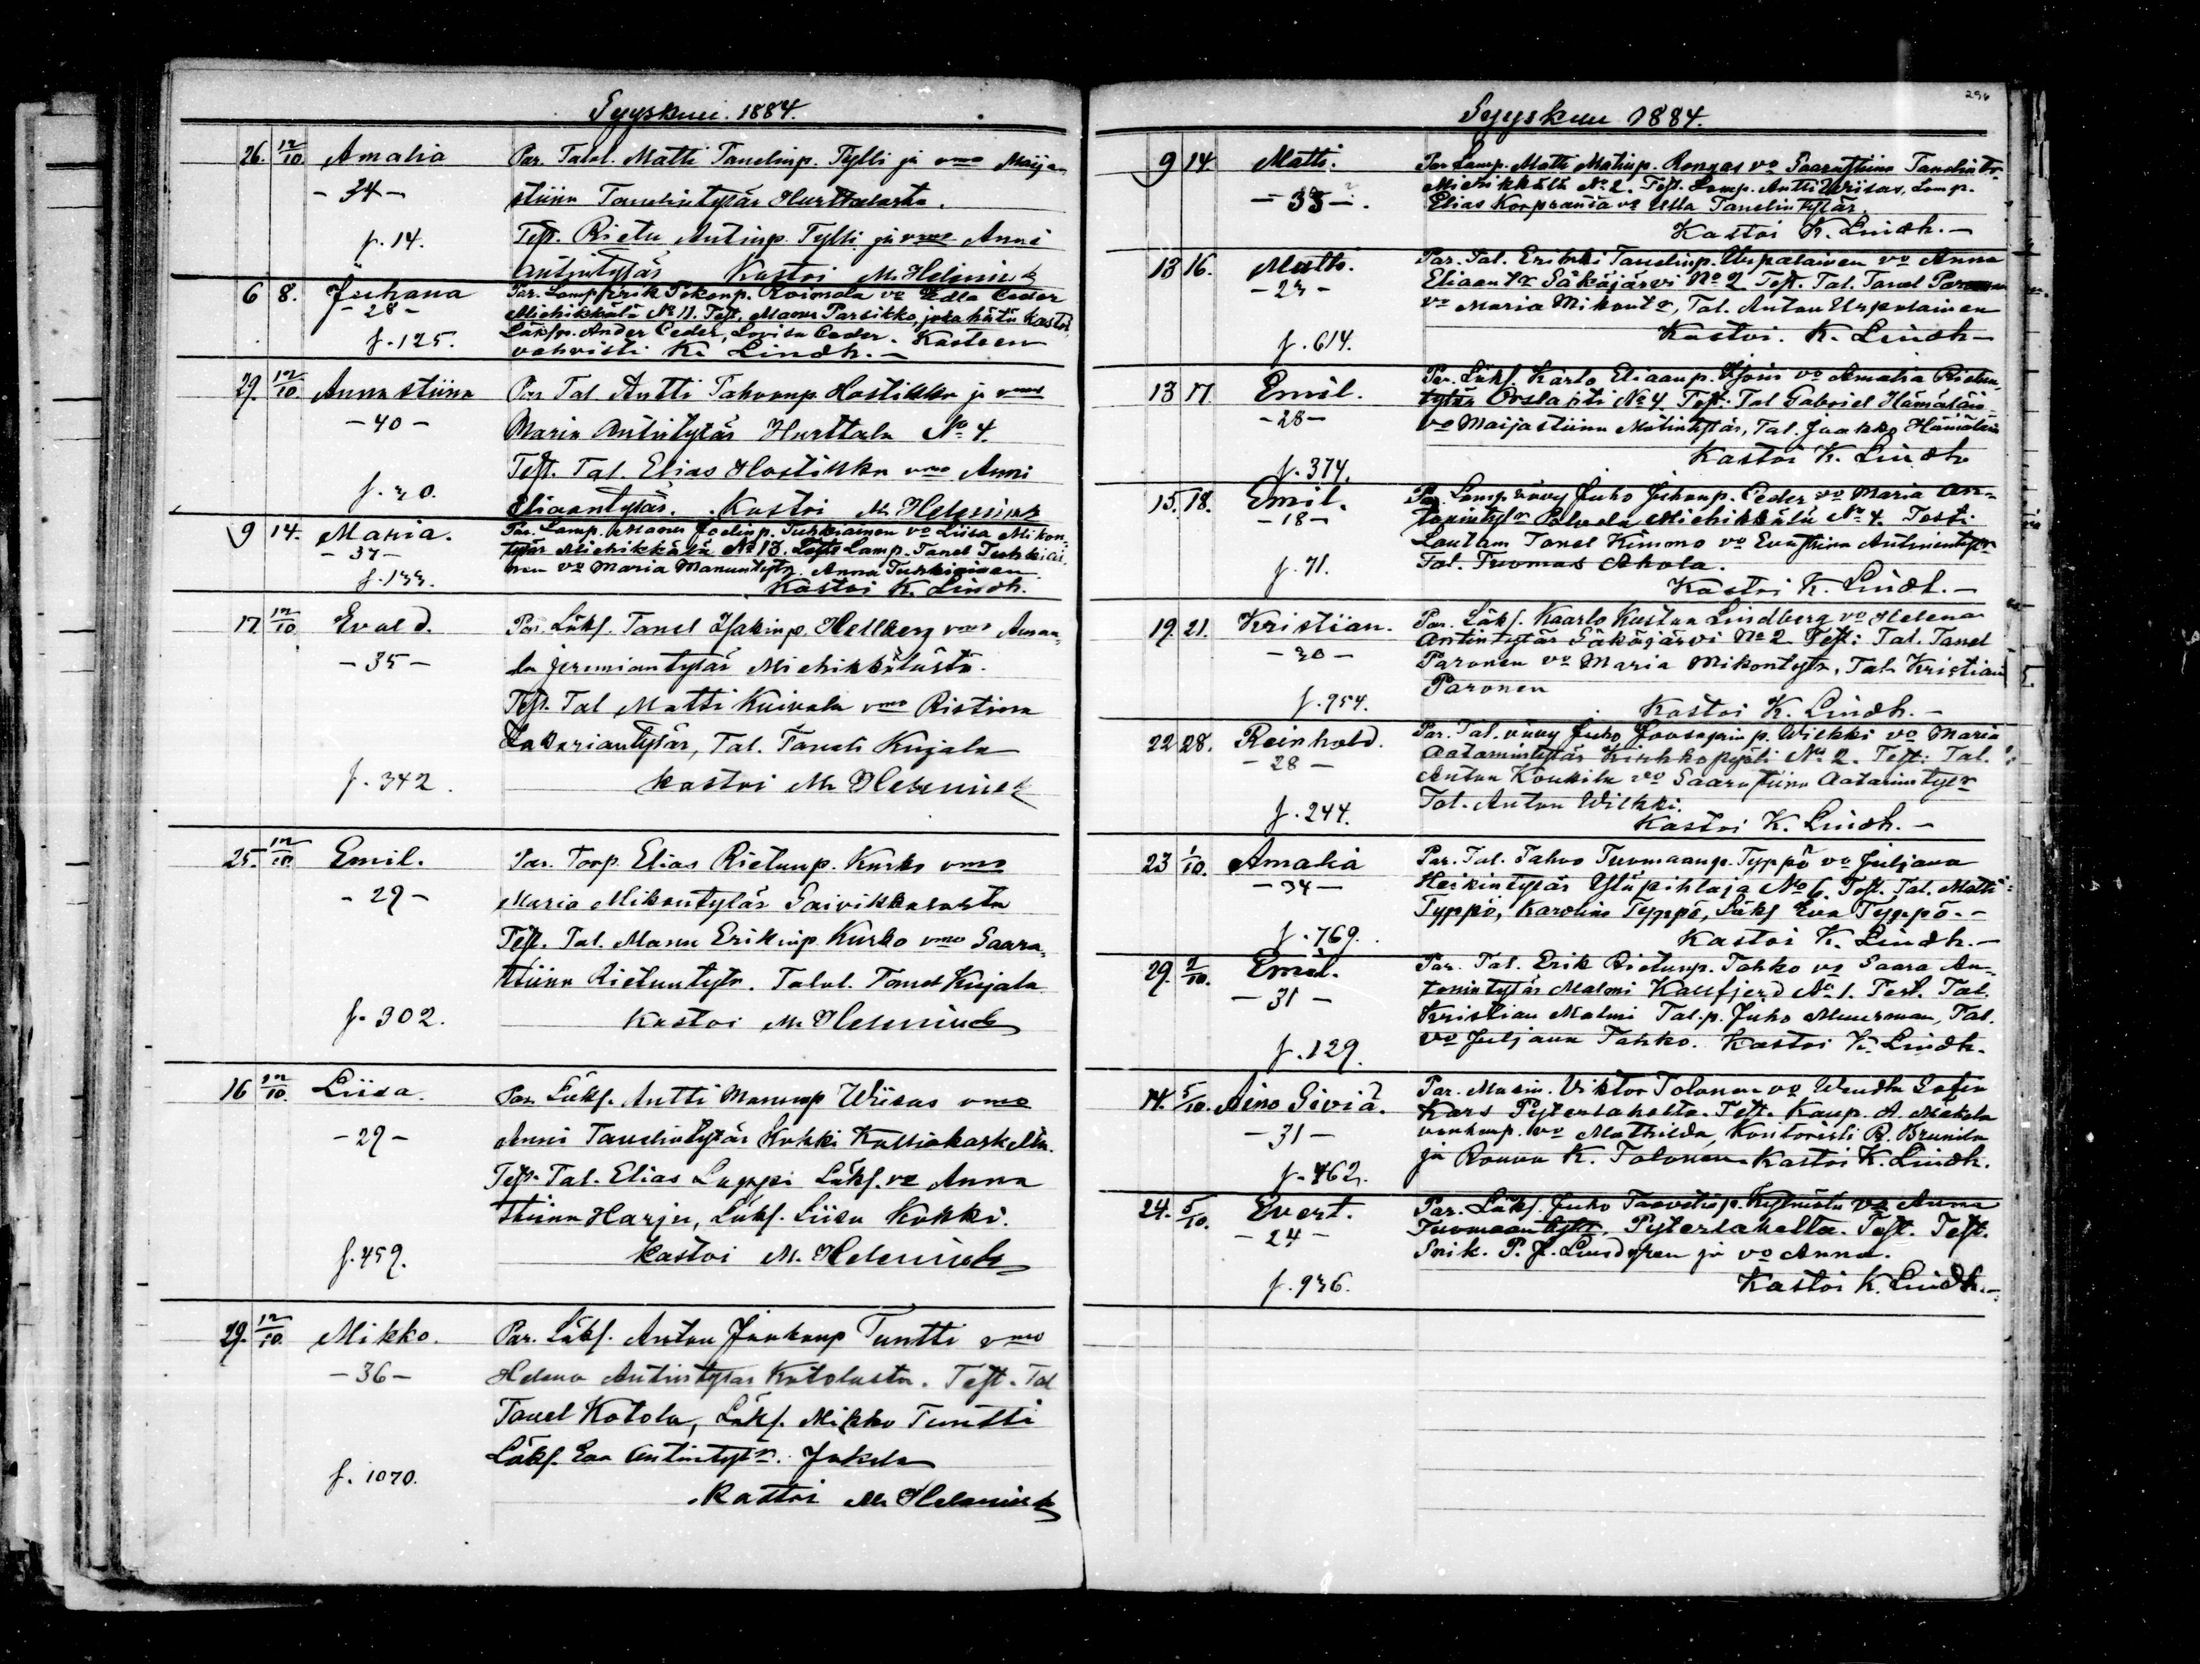 Syyskuu. 1884.
26. 12/10 Amalia Par. Talol. Matti Tanelinp. Tylli ja vmo Maija
- 34 - stiina Tanelintytär Hurttalasta.
f. 14. Test. Rietu Antinp. Tylli ja vmo Anni
Antintytär Kastoi M. Helenius
6 8. Juhana Par. Lamp. Erik Roimola vo Edla Ceder
- 28 - Miehikkälä No 11. Test. Maanu Tarsikko, joka hätä kastoi
f. 125. Läksn. Ander Ceder, Lovisa Ceder. Kasteen
vahvisti K. Lindh. -
29. 12/10. Anna Stiina Par Tal Antti Tahvanp. Hostikka ja vmo
- 40 - Maria Antintytär Hurttala No 4.
Test. Tal. Elias Hostikka vmo Anni
f. 20. Eliaantytär. Kastoi M. Helenius
9 14. Maria. Par. Lamp. Maanu Joelinp. Tuhkiainen vo Liisa Mikon-
- 37 - tytär Miehikkälä No 13. Test. Lamp. Tanel Tuhkiai-
f. 133. nen vo Maria Manuntytr. Anna Tuhkiainen.
Kastoi K. Lindh.
17 12/10 Evald. Par. Läks. Tanel Isakinp. Hellberg vmo Aman-
- 35 - da Jeremiantytär Miehikkälästä.
Test. Tal Matti Kuivala vmo Ristiina
Sakariantytär, Tal. Taneli Kujala
f. 342. Kastoi M. Helenius
25. 12/10. Emil. Par. Torp. Elias Rietunp. Kurko vmo
- 29 - Maria Mikontytär Saivikkalasta
Test. Tal. Manu Erikinp. Kurko vmo Saara-
stiina Rietuntytr. Talol. Tanel Kujala
f. 302. Kastoi M. Helenius
16 12/10. Liisa. Par. Läks. Antti Manunp Wiisas vmo
- 29 - Anni Tanelintytär Kokki
Test. Tal. Elias Luppi Läks. vo Anna
Stiina Harju, Läks. Liisa Kokki.
f. 459. Kastoi M. Helenius
29. 12/10. Mikko. Par. Läks. Anton Jaakonp Tuntti vmo
- 36 - Helena Antintytär Kotolasta. Test. Tal
Tanel Kotola, Läks. Mikko Tuntti
Läks. Eva Antintytr. Jokela
f. 1070. Kastoi M. Helenius
296
Syyskuu 1884.
9 14. Matti. Par Lamp. Matti Matinp. Rongas vo Saarastiina Tanelintr.
- 33 - Miehikkälä No 2. Test. Lamp. Antti Wiisas, Lamp.
Elias Korprausa vo Ulla Tanelintytär.
Kastoi K. Lindh. -
13 16. Matti. Par. Tal. Erikki Tanelinp. Urpalainen vo Anna
- 23 - Eliaantr Säkäjärvi No 2 Test. Tal. Tanel Paronen
vo Maria Mikontr, Tal. Anton Urpalainen
f. 614. Kastoi. K. Lindh -
13 17. Emil. Par. Läks. Karlo Eliaanp. vo Amalia Rietun-
- 28 - tytär Orslahti No 4. Test: Tal Gabriel Hämäläin-
vo Maijastiina Matintytär, Tal. Jaakko Hämäläin
f. 374. Kastoi K. Lindh
15. 18. Emil. Par. Lamp vävy Juho Juhanp. Ceder vo Maria An-
- 18 - toninttr Miehikkälä No 4. Testi
Lautam Tanel Kimmo vo Evastiina Antinintytr
f. 71. Tal. Tuomas Ahola.
Kastoi K. Lindh. -
19. 21. Kristian. Par. Läks. Kaarlo Kustaa Lindberg vo Helena
- 30 - Antintytär Säkäjärvi No 2 Test: Tal. Tanel
Paronen vo Maria Mikontytr, Tal. Kristian
f. 954. Paronen
Kastoi K. Lindh. -
22 28. Reinhold. Par. Tal. vävy Juho Joosepin p. Wilkki vo Maria
- 28 - Aatamintytär Kirkkopyöli No 2. Test: Tal.
Anton Koukila vo Saarastiina Aatamintytr
f. 244. Tal. Anton Wilkki.
Kastoi K. Lindh. -
23 1/10. Amalia Par. Tal. Tahvo Tuomaanp. Typpö vo Juljana
- 34 - Heikintytär Yläpihlaja No 6. Test. Tal. Matti
Typpö, Karolina Typpö, Läks Eva Typpö. -
f. 769. Kastoi K. Lindh. -
29. 2/10. Emil. Par. Tal. Erik Rietunp. Tahko vo Saara An-
- 31 - tonintytär Malmi Kallfjerd No 1. Test. Tal.
Kristian Malmi Tal.p. Juho Muurman, Tal.
f. 129. vo Juljana Tahko. Kastoi K. Lindh.
14. 5/10. Aino Siviä. Par. Viktor Tolonen vo Wendla Sofia
- 31 - Kars Pyterlahelta. Test. Kaup. A. Mäkela
vo Mathilda, Kontoristi R. Brunila
f. 462. ja Rouva K. Tolonen. Kastoi K. Lindh.
24. 5/10. Evert. Par. Läks. Juho Taavetinp. vo Anna
- 24 - Tuomaantytr. Pyterlahelta. Test. Test.
Snik. P. J. Lindgren ja vo Anna.
f. 936. Kastoi K. Lindh. -